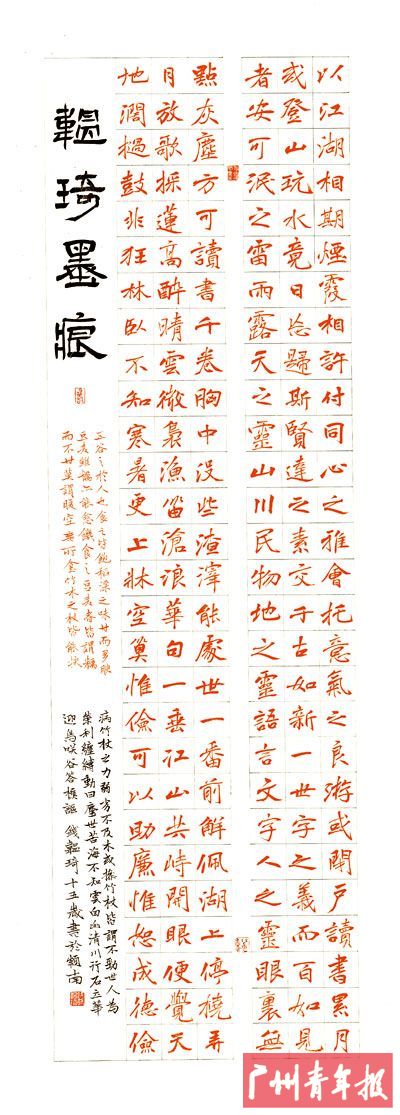 以江湖相期煙霞相許付同心之雅會托意氣之良游或閉戶讀書累月
或登山玩水竟日忘歸斯賢達之素交千古如新一世字之義而百如見
者安可泯之雷雨露天之靈山川民物地之靈語言文字人之靈眼裏無
點灰塵方可讀書千卷胸中沒些渣滓能處世一番前解佩湖上停橈弄
月放歌採蓮高醉晴雲徹裊漁笛滄浪華句一垂江山共峙開眼便覺天
地濶撾鼓非狂林臥不知寒暑更上牀空算惟儉可以助廉惟恕成德儉
韞琦墨痕
五谷之於人也食之皆飽稻粱之味甘而多
而不甘莫謂腹空無所食竹木之杖皆能扶
病竹杖之力弱劣不及木或操竹杖皆謂不勁世人為
榮利纏縛動曰塵世苦海不知雲白山清川行石立華
迎鳥咲谷答樵謳 錢韞琦十三歲書於嶺南
广州青年报